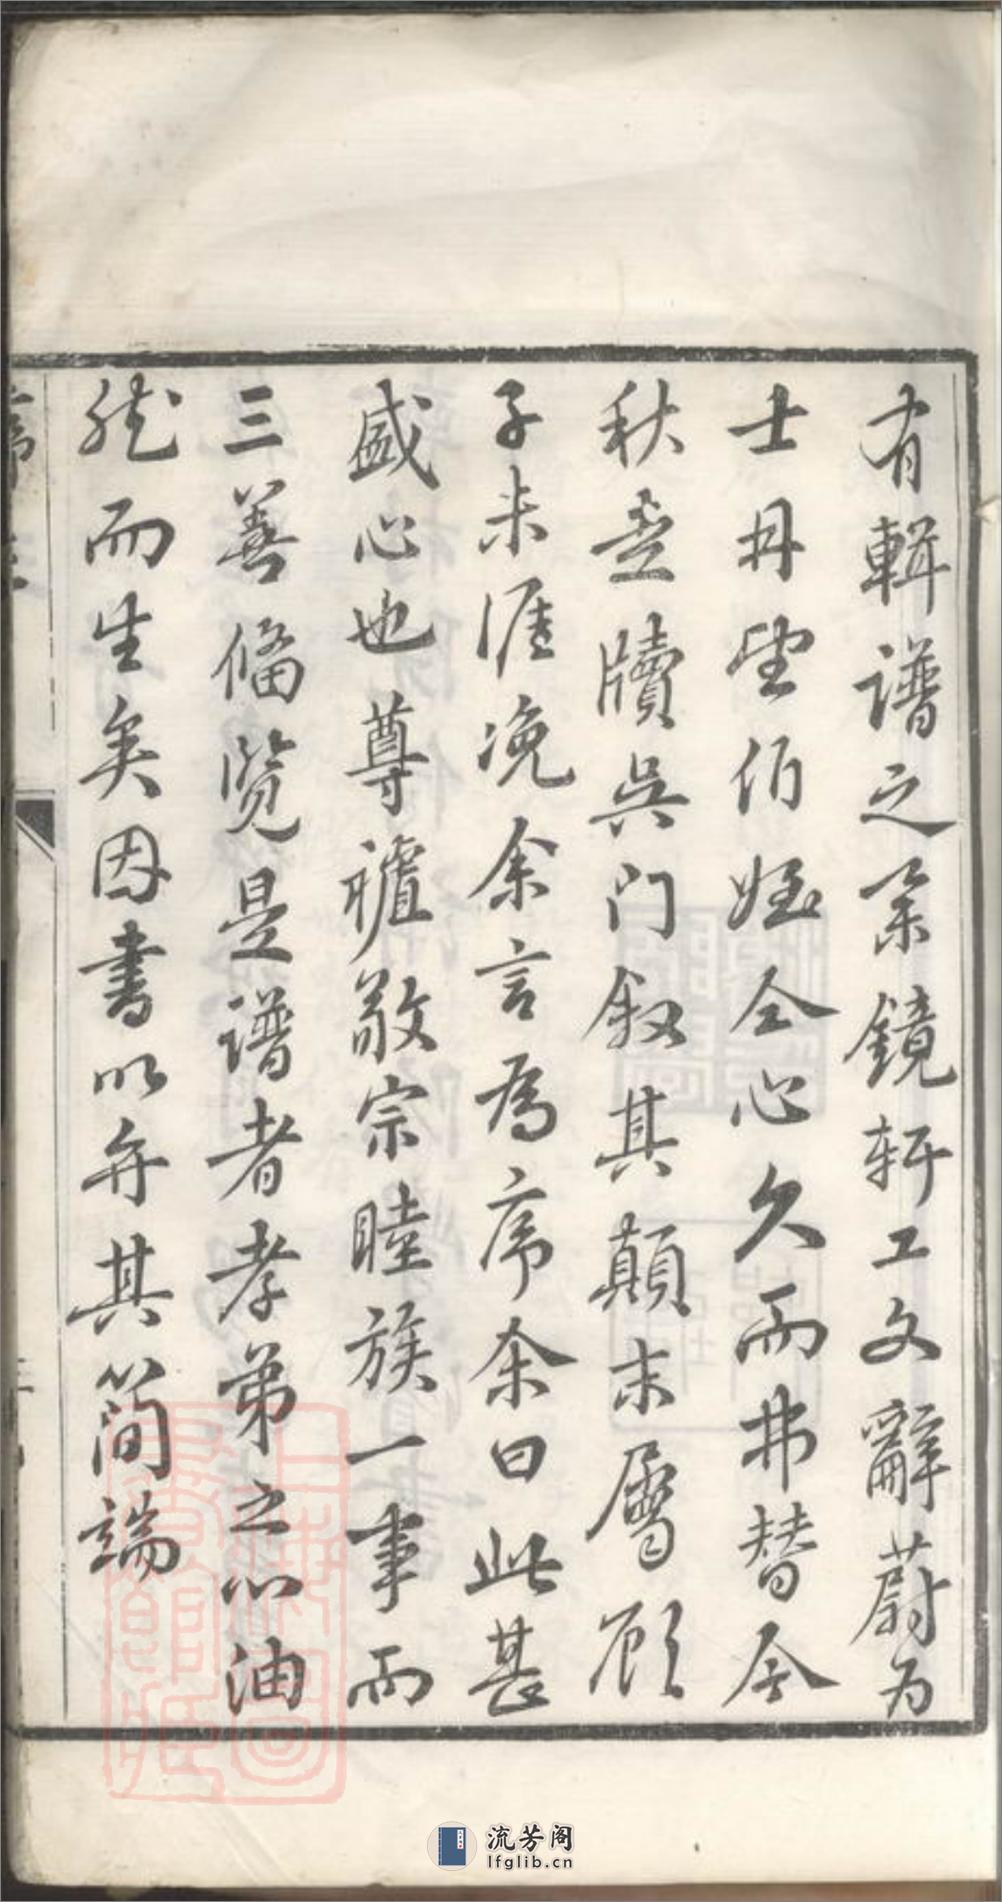 有輯譜之築鏡軒工文辭蔚為
士冄望伯姪仝心久而弗替今
秋走牘吳門叙其顛末屬顧
子未涯浼余言為序余曰此甚
盛心也尊禰敬宗睦族一事而
三善俻覽是譜者孝弟之心油
然而生矣因書以弁其簡端
上海圖書館藏
流芳阁
lfglib.cn